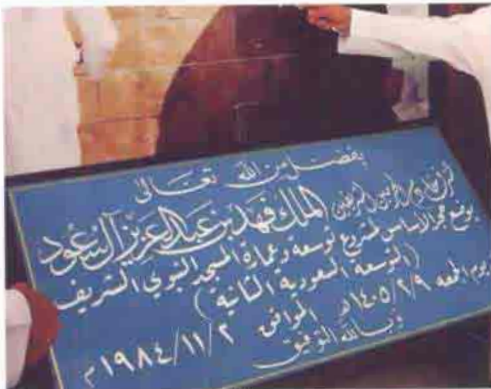 بفضل من الله تعالى
خادم الحرمين الشريفين الملك فهد بن عبد العزيز آل سعود
بوضع حجر الأساس لمشروع توسعة وعمارة المسجد النبوي الشريف
(التوسعة السعودية الثانية)
يوم الجمعة ١٤٠٥/٢/٩هـ الموافق ١٩٨٤/١١/٢م
وبالله التوفيق